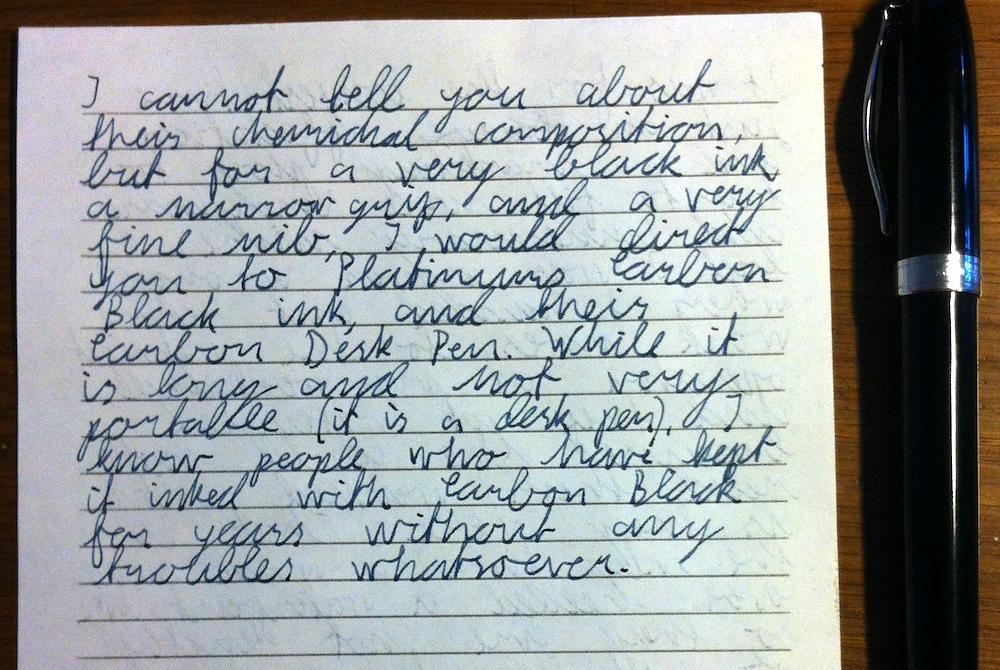 I cannot tell you about
their chemichal composition,
but for a very black ink,
a narrow grip, and a very
fine nib, I would direct
you to Platinums Carbon
Black ink, and their
Carbon Desk Pen. While it
is long and not very
portable (it is a desk pen), I
know people who have kept
it inked with Carbon Black
for years without any
troubles whatsoever.